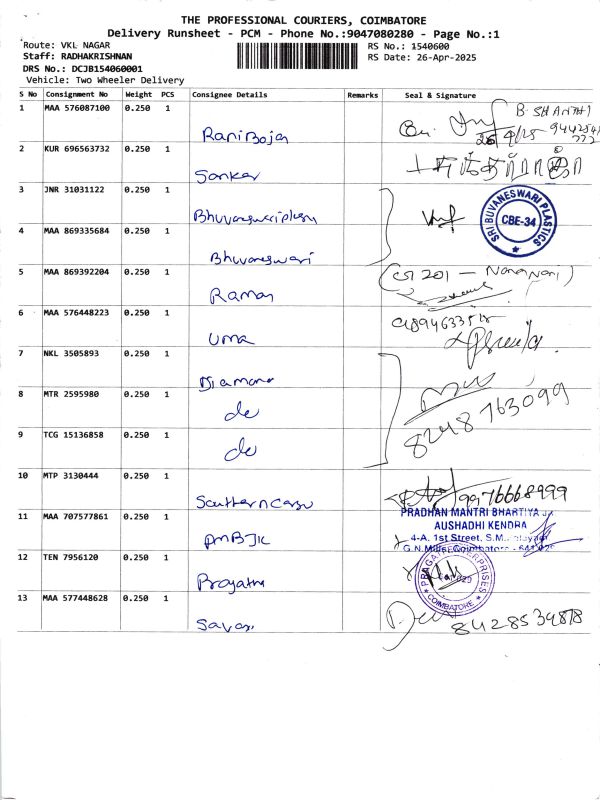 THE PROFESSIONAL COURIERS, COIMBATORE
Delivery Runsheet - PCM - Phone No.:9047080280 - Page No.:1
Route: VKL NAGAR
Staff: RADHAKRISHNAN
DRS No.: DCJB154060001
Vehicle: Two Wheeler Delivery
RS No.: 1540600
RS Date: 26-Apr-2025
S No Consignment No Weight PCS Consignee Details Remarks Seal & Signature
1 MAA 576087100 0.250 1 Rani Bojan B. SHANTHI
26/4/25
2 KUR 696563732 0.250 1 Sankar
3 JNR 31031122 0.250 1 SRI BUVANESWARI PLASTICS CBE-34
4 MAA 869335684 0.250 1 Bhuvaneswari
5 MAA 869392204 0.250 1 Raman
6 MAA 576448223 0.250 1 Uma
7 NKL 3505893 0.250 1 Diamond
8 MTR 2595980 0.250 1 do 8248763099
9 TCG 15136858 0.250 1 do
10 MTP 3130444 0.250 1 9976668999
11 MAA 707577861 0.250 1 PMBJK PRADHAN MANTRI BHARTIYA
AUSHADHI KENDRA
4-A. 1st Street, S.M.
G.N.Mills, Coimbatore - 641 029
12 TEN 7956120 0.250 1 PRAGATHI ENTERPRISES COIMBATORE
13 MAA 577448628 0.250 1 8428534878